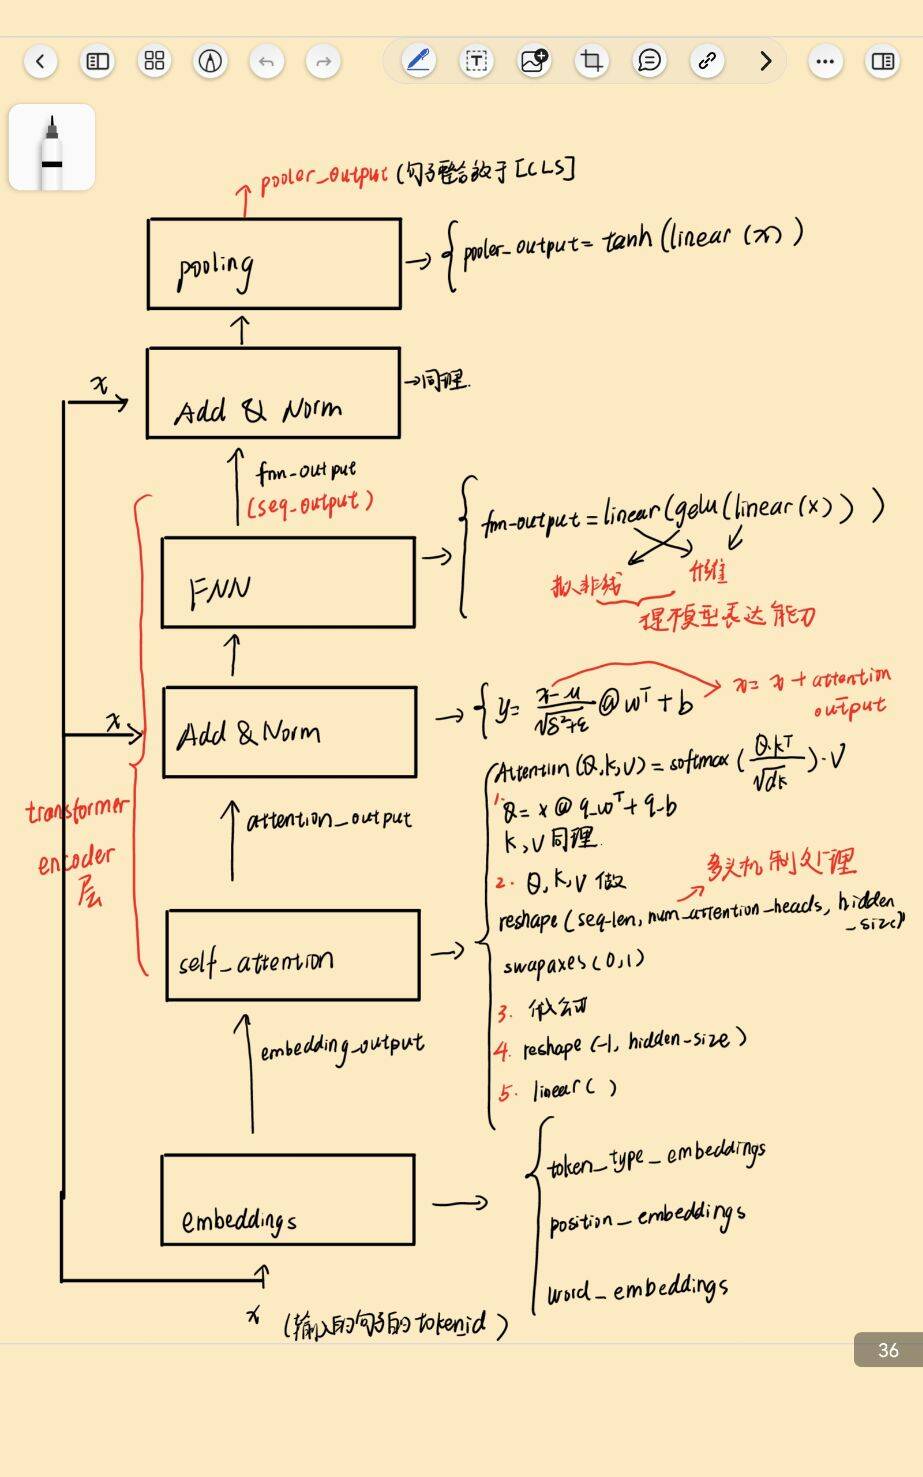 pooler_output (句子整合放于[CLS]
pooling
{ pooler_output = tanh (linear (x) )
x
Add & Norm
→同理.
fnn-output
(seq_output)
FNN
fnn-output = linear(gelu(linear(x)) )
拟非线
升维
提模型表达能力
x
Add & Norm
{ y = x-μ / √δ²+ε @ wᵀ + b
x = x + attention output
transformer
encoder
层
attention_output
Attention (Q,K,V) = softmax ( Q.Kᵀ / √dk ) · V
1. Q = x @ q_wᵀ + q-b
K, V 同理.
2. Q, K, V 做
多头机制处理
reshape (seq-len, num_attention-heads, hidden_size)
swapaxes (0,1)
self_attention
3. 做
4. reshape (-1, hidden-size)
5. linear ( )
embedding_output
embeddings
token_type_embeddings
position_embeddings
word_embeddings
x (输入的句子的tokenid )
36